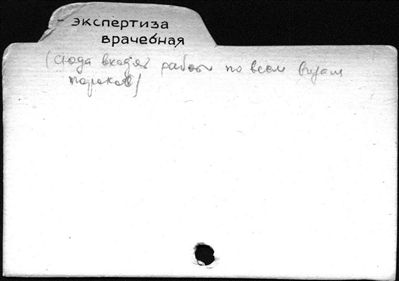 - экспертиза
врачебная
(сюда входят работы по всем видам
пороков)